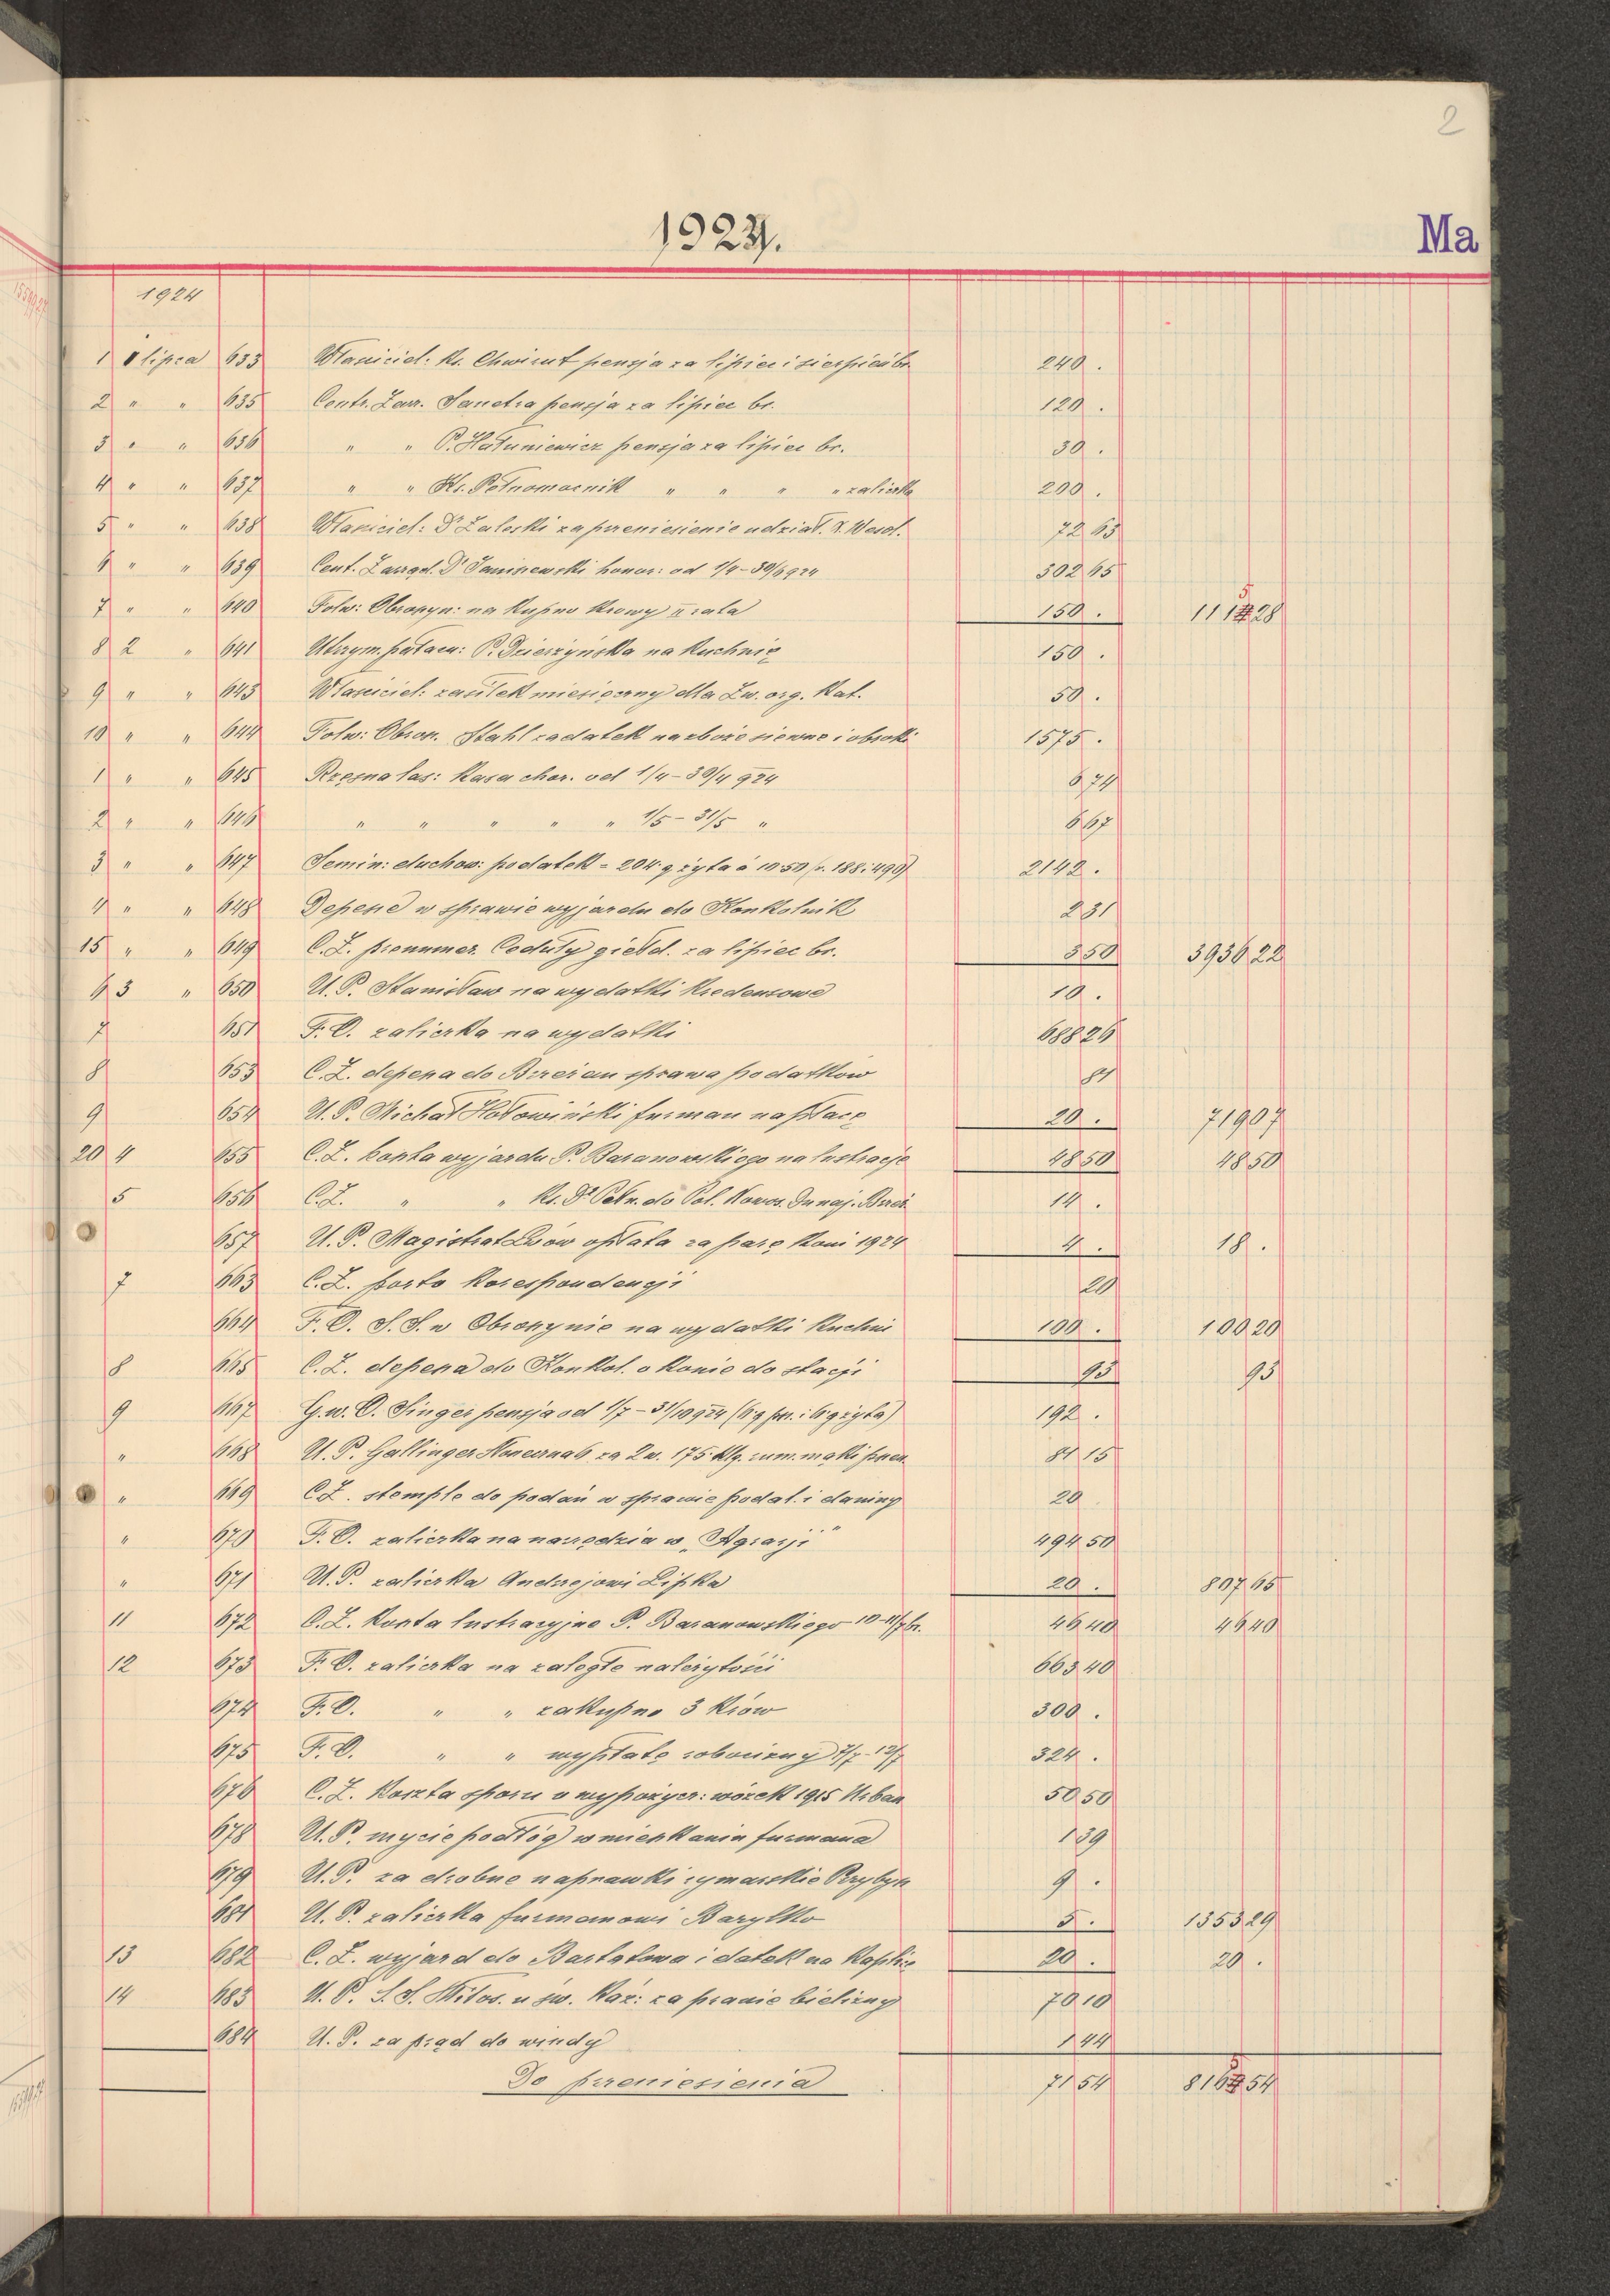 2
1924.
Ma
1924
1 1 lipca 633 Właściciel: Ks. Chwirut pensja za lipiec i sierpień br. 240 .
2 " " 635 Centr. Zarz. Sanetra pensja za lipiec br. 120 .
3 " " 636 " " P. Hatuniewicz pensja za lipiec br. 30 .
4 " " 637 " " Ks. Pełnomocnik " " " " zaliczka 200 .
5 " " 638 Właściciel: Dr Zaleski za przeniesienie udział. 72 63
6 " " 639 Cent. Zarząd. Dr Janiszewski honor: od 1/4-30/6 924 302 65
7 " " 640 Folw: Obroszyn: na kupno krowy II rata 150 . 1115 28
8 2 " 641 Utrzym. pałacu: P. Dzieżyńska na kuchnię 150 .
9 " " 643 Właściciel: zasiłek miesięczny dla Zw. org. Kat. 50 .
10 " " 644 Folw: Obrosz. Stahl zadatek na zboże siewne i obroki 1575 .
1 " " 645 Rzęsna las: Kasa chor. od 1/4-30/4 924 6 74
2 " " 646 " " " " " 1/5-31/5 " 6 67
3 " " 647 Semin: duchow: podatek = 204 q żyta à 10.50 (r. 188: 490) 2142 .
4 " " 648 Depesze w sprawie wyjazdu do Konkolnik 2 31
15 " " 649 C. Z. prenumer. Ceduły giełd. za lipiec br. 3 50 3936 22
6 3 " 650 U. P. Stanisław na wydatki kredensowe 10 .
7 651 F. O. zaliczka na wydatki 688 26
8 653 C. Z. depesza do Brzeżan sprawa podatków 81
9 654 U. P. Michał Hołowiński furman na płacę 20 . 719 07
20 4 655 C. Z. koszta wyjazdu P. Baranowskiego na lustracje 48 50 48 50
5 656 C. Z. " " Ks. Dr Pełn. do Pol. Nowos. Dunaj. Brzeż. 14 .
657 U. P. Magistrat Lwów opłata za parę koni 1924 4 . 18 .
7 663 C. Z. porto korespondencji 20
664 F. O. S. S. w Obroszynie na wydatki kuchni 100 . 100 20
8 665 C. Z. depesza do Konkol. o konie do stacji 93 93
9 667 G. w. O. Singer pensja od 1/7-31/10 924 (6 q psz. i 6 q żyta) 192 .
" 668 U. P. Gallinger za 2 w. 175 klg. rum. mąki pszen. 81 15
" 669 C. Z. stemple do podań w sprawie podat. i daniny 20
" 670 F. O. zaliczka na narzędzia w "Agrarji" 494 50
" 671 U. P. zaliczka Andrzejowi Lipka 20 . 807 65
11 672 C. Z. koszta lustracyjne P. Baranowskiego 10-11/7 br. 46 40 46 40
12 673 F. O. zaliczka na zaległe należytości 663 40
674 F. O. " " zakupno 3 krów 300 .
675 F. O. " " wypłatę robocizny 7/7-12/7 324 .
676 C. Z. koszta sporu o wypożycz: wózek 1915 Urban 50 50
678 U. P. mycie podłóg w mieszkaniu furmana 1 39
679 U. P. za drobne naprawki rymarskie Przybyś 9 .
681 U. P. zaliczka furmanowi Baryłko 5 . 1353 29
13 682 C. Z. wyjazd do Bartatowa i datek na kaplicę 20 . 20 .
14 683 U. P. S. S. Miłos. u św. Kaz: za pranie bielizny 70 10
684 U. P. za prąd do windy 1 44
Do przeniesienia 71 54 8165 54